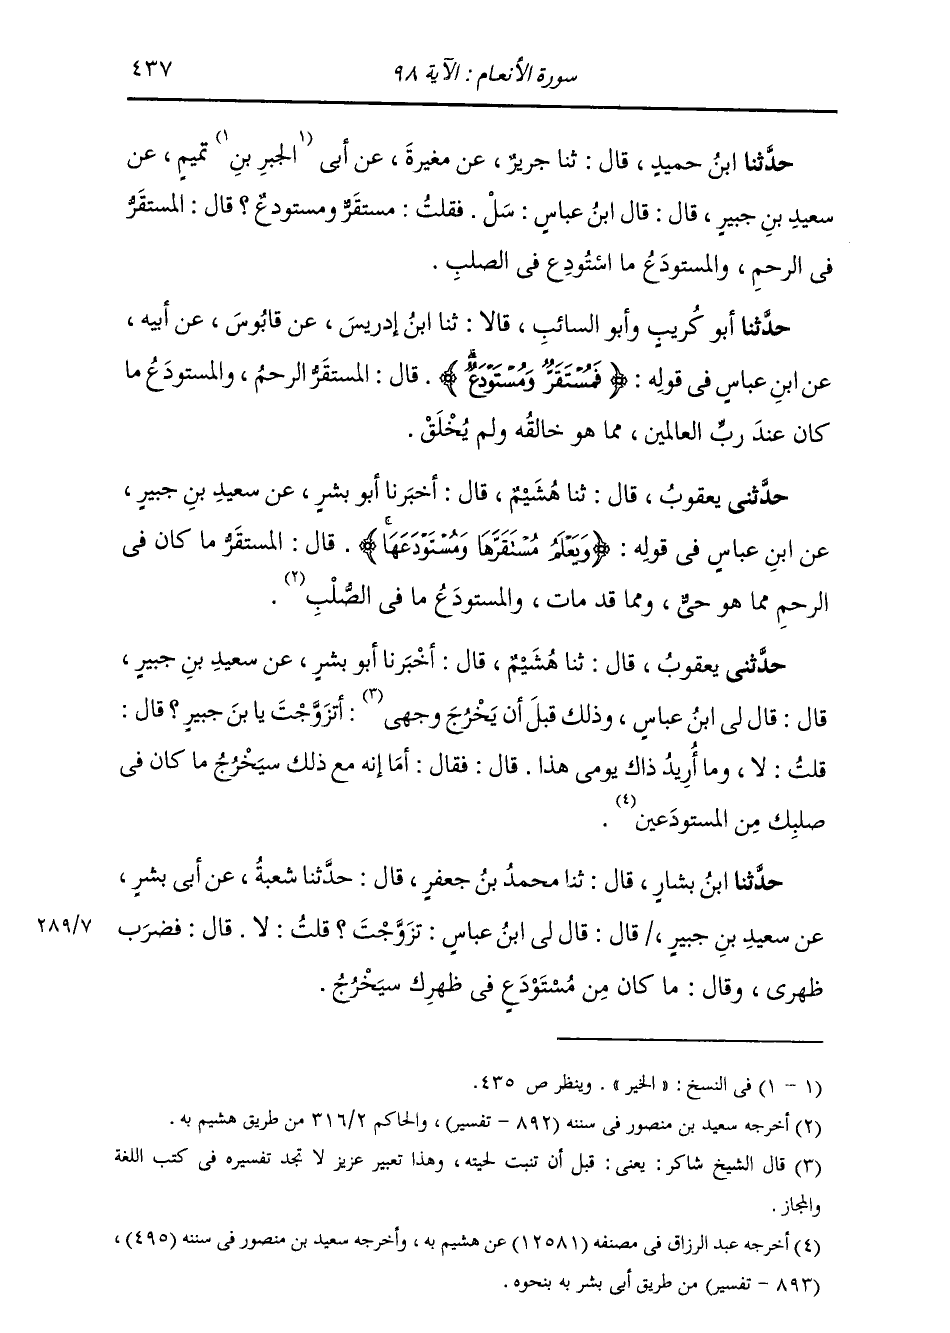 سورة الأنعام : الآية ٩٨
٤٣٧
حدَّثنا ابنُ حميدٍ ، قال : ثنا جريرٌ ، عن مغيرةَ ، عن أبى (١الجبرِ بنِ١) تميمٍ ، عن
سعيدِ بنِ جبيرٍ ، قال : قال ابنُ عباسٍ : سَلْ . فقلتُ : مستقَرٌّ ومستودعٌ ؟ قال : المستقَرُّ
فى الرحمِ ، والمستودَعُ ما اسْتُودِع فى الصلبِ .
حدَّثنا أبو كُريبٍ وأبو السائبِ ، قالا : ثنا ابنُ إدريسَ ، عن قابُوسَ ، عن أبيه ،
عن ابنِ عباسٍ فى قولِه : ﴿ فَمُسْتَقَرٌّ وَمُسْتَوْدَعٌ ﴾ . قال : المستقَرُّ الرحمُ ، والمستودَعُ ما
كان عندَ ربِّ العالمين ، مما هو خالقُه ولم يُخْلَقْ .
حدَّثنى يعقوبُ ، قال : ثنا هُشَيْمٌ ، قال : أخبَرنا أبو بشرٍ ، عن سعيدِ بنِ جبيرٍ ،
عن ابنِ عباسٍ فى قولِه : ﴿ وَيَعْلَمُ مُسْتَقَرَّهَا وَمُسْتَوْدَعَهَا ﴾ . قال : المستقَرُّ ما كان فى
الرحمِ مما هو حىٌّ ، ومما قد مات ، والمستودَعُ ما فى الصُّلْبِ(٢) .
حدَّثنى يعقوبُ ، قال : ثنا هُشَيْمٌ ، قال : أخْبَرنا أبو بشرٍ ، عن سعيدِ بنِ جبيرٍ ،
قال : قال لى ابنُ عباسٍ ، وذلك قبلَ أن يَخْرُجَ وجهى(٣) : أتزوَّجْتَ يا بنَ جبيرٍ ؟ قال :
قلتُ : لا ، وما أُرِيدُ ذاك يومى هذا . قال : فقال : أمَا إنه مع ذلك سيَخْرُجُ ما كان فى
صلبِك مِن المستودَعين(٤) .
حدَّثنا ابنُ بشارٍ ، قال : ثنا محمدُ بنُ جعفرٍ ، قال : حدَّثنا شعبةُ ، عن أبى بشرٍ ،
عن سعيدِ بنِ جبيرٍ ،/ قال : قال لى ابنُ عباسٍ : تزوَّجْتَ ؟ قلتُ : لا . قال : فضرَب
٢٨٩/٧
ظهرى ، وقال : ما كان مِن مُسْتَوْدَعٍ فى ظهرِك سيَخْرُجُ .
(١ - ١) فى النسخ : « الخير » . وينظر ص ٤٣٥.
(٢) أخرجه سعيد بن منصور فى سننه (٨٩٢ - تفسير) ، والحاكم ٣١٦/٢ من طريق هشيم به .
(٣) قال الشيخ شاكر : يعنى : قبل أن تنبت لحيته ، وهذا تعبير عزيز لا تجد تفسيره فى كتب اللغة
والمجاز .
(٤) أخرجه عبد الرزاق فى مصنفه (١٢٥٨١) عن هشيم به ، وأخرجه سعيد بن منصور فى سننه (٤٩٥) ،
(٨٩٣ - تفسير) من طريق أبى بشر به بنحوه .